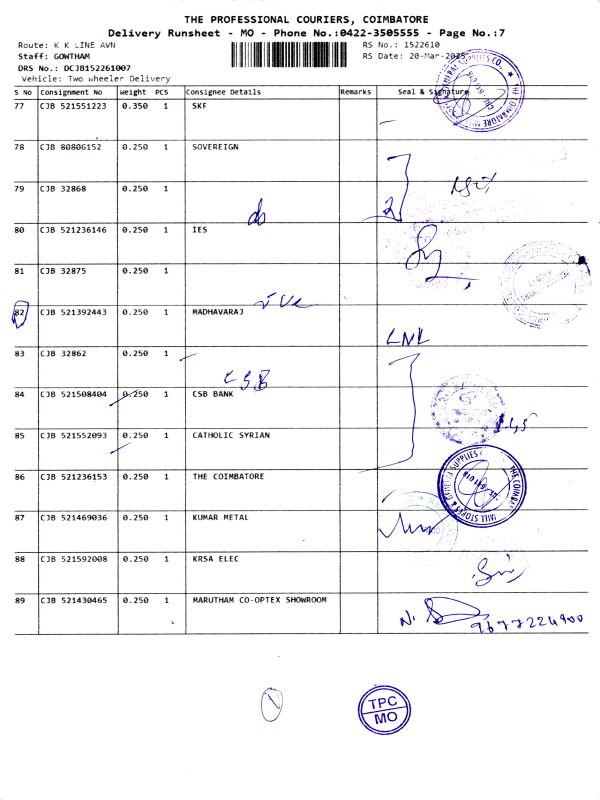 THE PROFESSIONAL COURIERS, COIMBATORE
Delivery Runsheet - MO - Phone No.:0422-3505555 - Page No.:7
Route: K K LINE AVN RS No.: 1522610
Staff: GOWTHAM RS Date: 20-Mar-2025
DRS No.: DCJB152261007
Vehicle: Two Wheeler Delivery
S No Consignment No Weight PCS Consignee Details Remarks Seal & Signature
77 CJB 521551223 0.350 1 SKF
78 CJB 80806152 0.250 1 SOVEREIGN
79 CJB 32868 0.250 1
80 CJB 521236146 0.250 1 IES
81 CJB 32875 0.250 1
82 CJB 521392443 0.250 1 MADHAVARAJ
83 CJB 32862 0.250 1
CSB
84 CJB 521508404 0.250 1 CSB BANK
85 CJB 521552093 0.250 1 CATHOLIC SYRIAN
86 CJB 521236153 0.250 1 THE COIMBATORE
87 CJB 521469036 0.250 1 KUMAR METAL
88 CJB 521592008 0.250 1 KRSA ELEC
89 CJB 521430465 0.250 1 MARUTHAM CO-OPTEX SHOWROOM
9677224900
TPC
MO